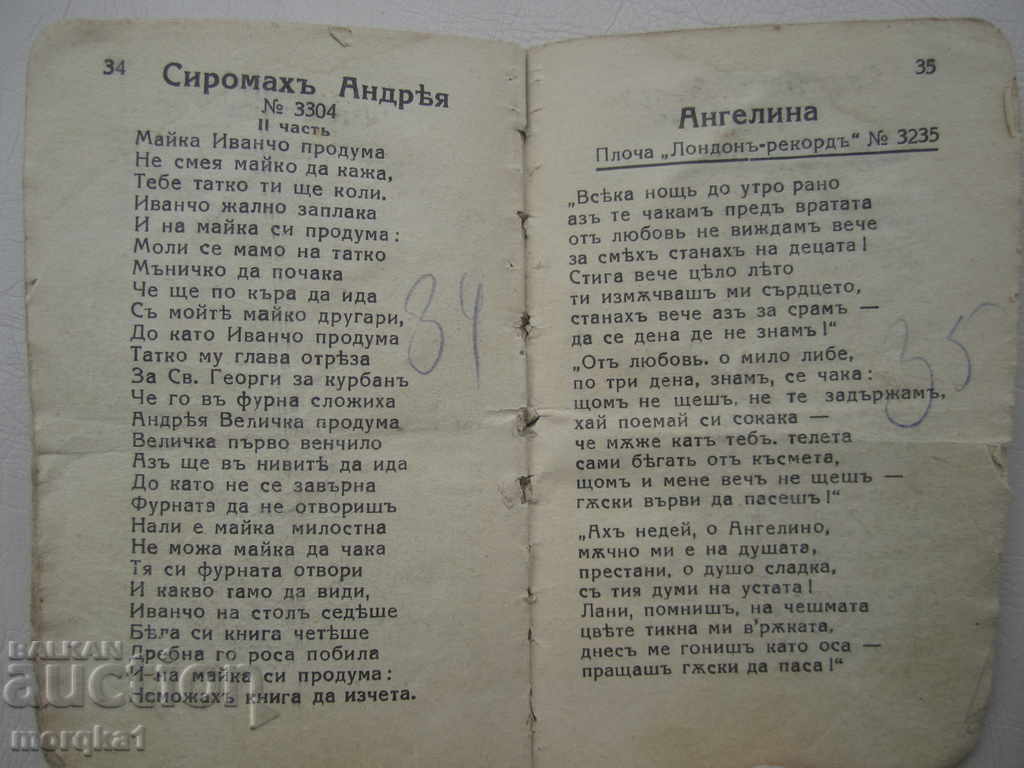 34
Сиромахъ Андрѣя
№ 3304
II часть
Майка Иванчо продума
Не смея майко да кажа,
Тебе татко ти ще коли.
Иванчо жално заплака
И на майка си продума:
Моли се мамо на татко
Мъничко да почака
Че ще по къра да ида
Съ мойтѣ майко другари,
До като Иванчо продума
Татко му глава отрѣза
За Св. Георги за курбанъ
Че го въ фурна сложиха
Андрѣя Величка продума
Величка първо венчило
Азъ ще въ нивитѣ да ида
До като не се завърна
Фурната да не отворишъ
Нали е майка милостна
Не можа майка да чака
Тя си фурната отвори
И какво тамо да види,
Иванчо на столъ седѣше
Бѣла си книга четѣше
Дребна го роса побила
И на майка си продума:
Неможахъ книга да изчета.
34
35
Ангелина
Плоча „Лондонъ-рекордъ" № 3235
„Всѣка нощь до утро рано
азъ те чакамъ предъ вратата
отъ любовь не виждамъ вече
за смѣхъ станахъ на децата!
Стига вече цѣло лѣто
ти измѫчвашъ ми сърдцето,
станахъ вече азъ за срамъ —
да се дена де не знамъ!"
„Отъ любовь. о мило либе,
по три дена, знамъ, се чака:
щомъ не щешъ, не те задържамъ,
хай поемай си сокака —
че мѫже катъ тебъ. телета
сами бѣгатъ отъ късмета,
щомъ и мене вечъ не щешъ —
гѫски върви да пасешъ!"
„Ахъ недей, о Ангелино,
мѫчно ми е на душата,
престани, о душо сладка,
съ тия думи на устата!
Лани, помнишъ, на чешмата
цвѣте тикна ми в'рѫката,
днесъ ме гонишъ като оса —
пращашъ гѫски да паса!"
35
BALKAN
auction
morqka1